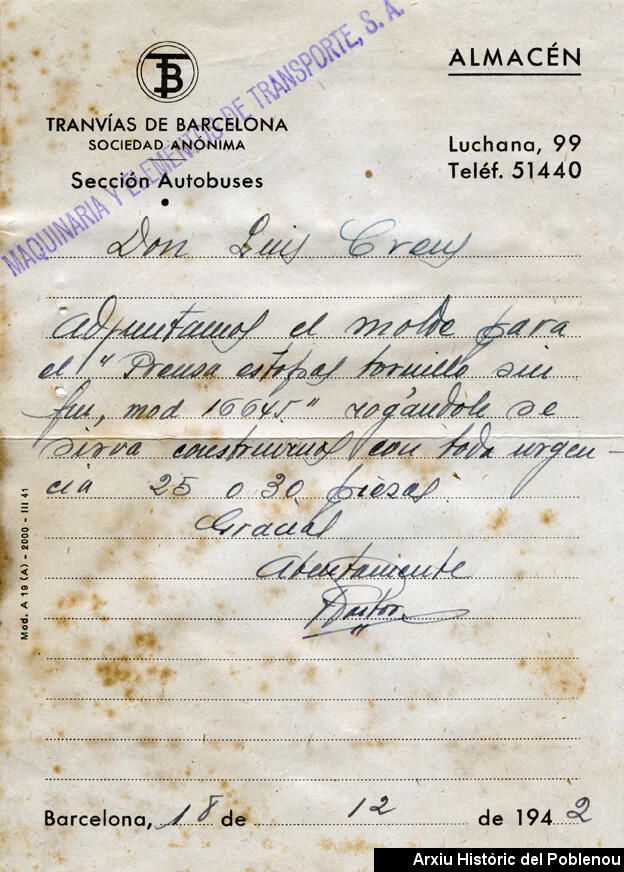 TB
ALMACÉN
TRANVÍAS DE BARCELONA
SOCIEDAD ANÓNIMA
Sección Autobuses
Luchana, 99
Teléf. 51440
MAQUINARIA Y ELEMENTOS DE TRANSPORTE, S. A.
Don Luis Creus
Adjuntamos el molde para
el " Prensa estopas tornillo sin
fin, mod 16645." rogándole se
sirva construirnos con toda urgen-
cia 25 o 30 piezas
Gracias
Atentamente
Pastor
Mod. A 19 (A) - 2000 - III 41
Barcelona, 18 de 12 de 1942
Arxiu Històric del Poblenou